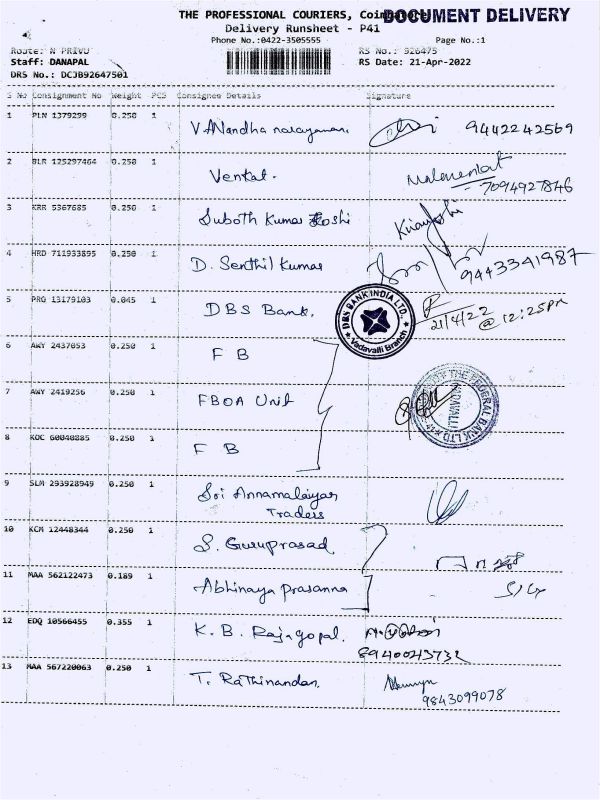 THE PROFESSIONAL COURIERS, Coimbatore
DOCUMENT DELIVERY
Delivery Runsheet - P41
Phone No.:0422-3505555
Page No.:1
Route: N PRIVU
RS No.: 926475
Staff: DANAPAL
RS Date: 21-Apr-2022
DRS No.: DCJB92647501
S No Consignment No Weight PCS Consignee Details Signature
1 PLN 1379299 0.250 1 V.ANandha narayanan. 9442242569
2 BLR 125297464 0.250 1 Venkat. 7094927846
3 KRR 5367685 0.250 1 Suboth Kumar Joshi
4 HRD 711933895 0.250 1 D. Senthil Kumar 9443341987
5 PRG 13179103 0.045 1 DBS Bank. 21/4/22 @ 12:25pm
DBS BANK INDIA LTD., Vadavalli Branch
6 AWY 2437053 0.250 1 F B
7 AWY 2419256 0.250 1 FBOA Unit
THE FEDERAL BANK LTD VADAVALLI
8 KOC 60040885 0.250 1 F B
9 SLM 293928949 0.250 1 Sri Annamalaiyar
Traders
10 KCM 12448344 0.250 1 S. Guruprasad
11 MAA 562122473 0.189 1 Abhinaya prasanna
12 EDQ 10566455 0.355 1 K. B. Rajagopal.
8940043732
13 MAA 567220063 0.250 1 T. Rathinandan.
9843099078